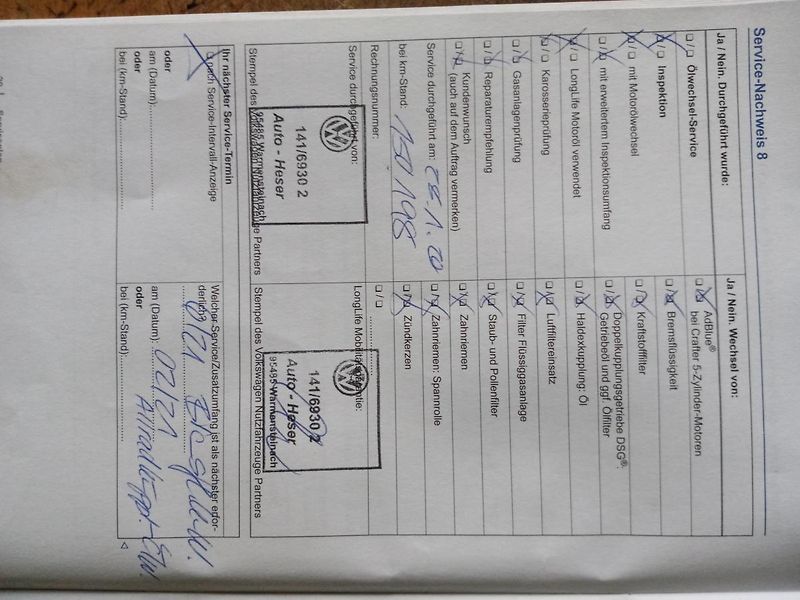 Service-Nachweis 8
Ja / Nein. Durchgeführt wurde:
☐/☐ Ölwechsel-Service
☐/☐ Inspektion
☐/☐ mit Motorölwechsel
☐/☐ mit erweitertem Inspektionsumfang
☐/☐ LongLife Motoröl verwendet
☐/☐ Karosserieprüfung
☐/☐ Gasanlagenprüfung
☐/☐ Reparaturempfehlung
☐/☐ Kundenwunsch
(auch auf dem Auftrag vermerken)
Service durchgeführt am: 28.1.20
bei km-Stand: 150198
Rechnungsnummer:
Service durchgeführt von:
141/6930 2
Auto - Heser
95485 Warmensteinach
Stempel des Volkswagen Nutzfahrzeuge Partners
Ja / Nein. Wechsel von:
☐/☐ AdBlue®
bei Crafter 5-Zylinder-Motoren
☐/☐ Bremsflüssigkeit
☐/☐ Kraftstofffilter
☐/☐ Doppelkupplungsgetriebe DSG®:
Getriebeöl und ggf. Ölfilter
☐/☐ Haldexkupplung: Öl
☐/☐ Luftfiltereinsatz
☐/☐ Filter Flüssiggasanlage
☐/☐ Staub- und Pollenfilter
☐/☐ Zahnriemen
☐/☐ Zahnriemen: Spannrolle
☐/☐ Zündkerzen
☐/☐
LongLife Mobilitätsgarantie:
141/6930 2
Auto - Heser
95485 Warmensteinach
Stempel des Volkswagen Nutzfahrzeuge Partners
Ihr nächster Service-Termin
☐ nach Service-Intervall-Anzeige
oder
am (Datum):
oder
bei (km-Stand):
Welcher Service/Zusatzumfang ist als nächster erfor-
derlich?
am (Datum): 02/21
oder
bei (km-Stand):